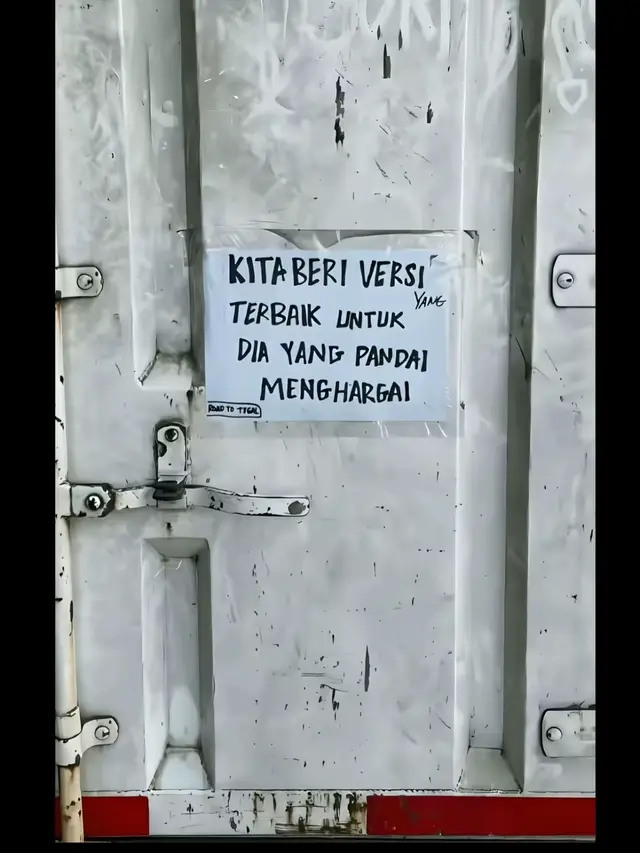 KITA BERI VERSI
YANG
TERBAIK UNTUK
DIA YANG PANDAI
MENGHARGAI
ROAD TO TEGAL